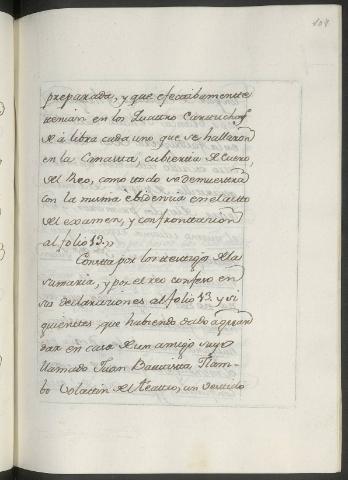 104
preparada, y que efectibamente
tenian en los Quatro Cartuchos
de à libra cada uno que se hallaron
en la Canasta, cubierta de Cuero,
del Reo, como todo se demuestra
con la misma evidencia en el auto
del examen, y confrontacion
al folio 13.,,
Consta por los testigos de la
sumaria, y por el reo confeso en
sus declaraciones al folio 13. y si
guientes, que habiendo dado a guar
dar en casa de un amigo suyo
llamado Juan Bautista,
bo Volatin del Teatro, un vestido